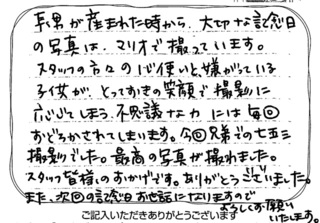 長男が産まれた時から、大切な記念日
の写真は、マリオで撮っています。
スタッフの方々の心使いと、嫌がっている
子供が、とってきの笑顔で撮影に
応じてしまう、不思議な力には毎回
おどろかされてしまいます。今回兄弟での七五三
撮影でした。最高の写真が撮れました。
スタッフ皆様のおかげです。ありがとうございました。
また、次回の記念日お世話になりますので
よろしくお願い
いたします。
ご記入いただきありがとうございます